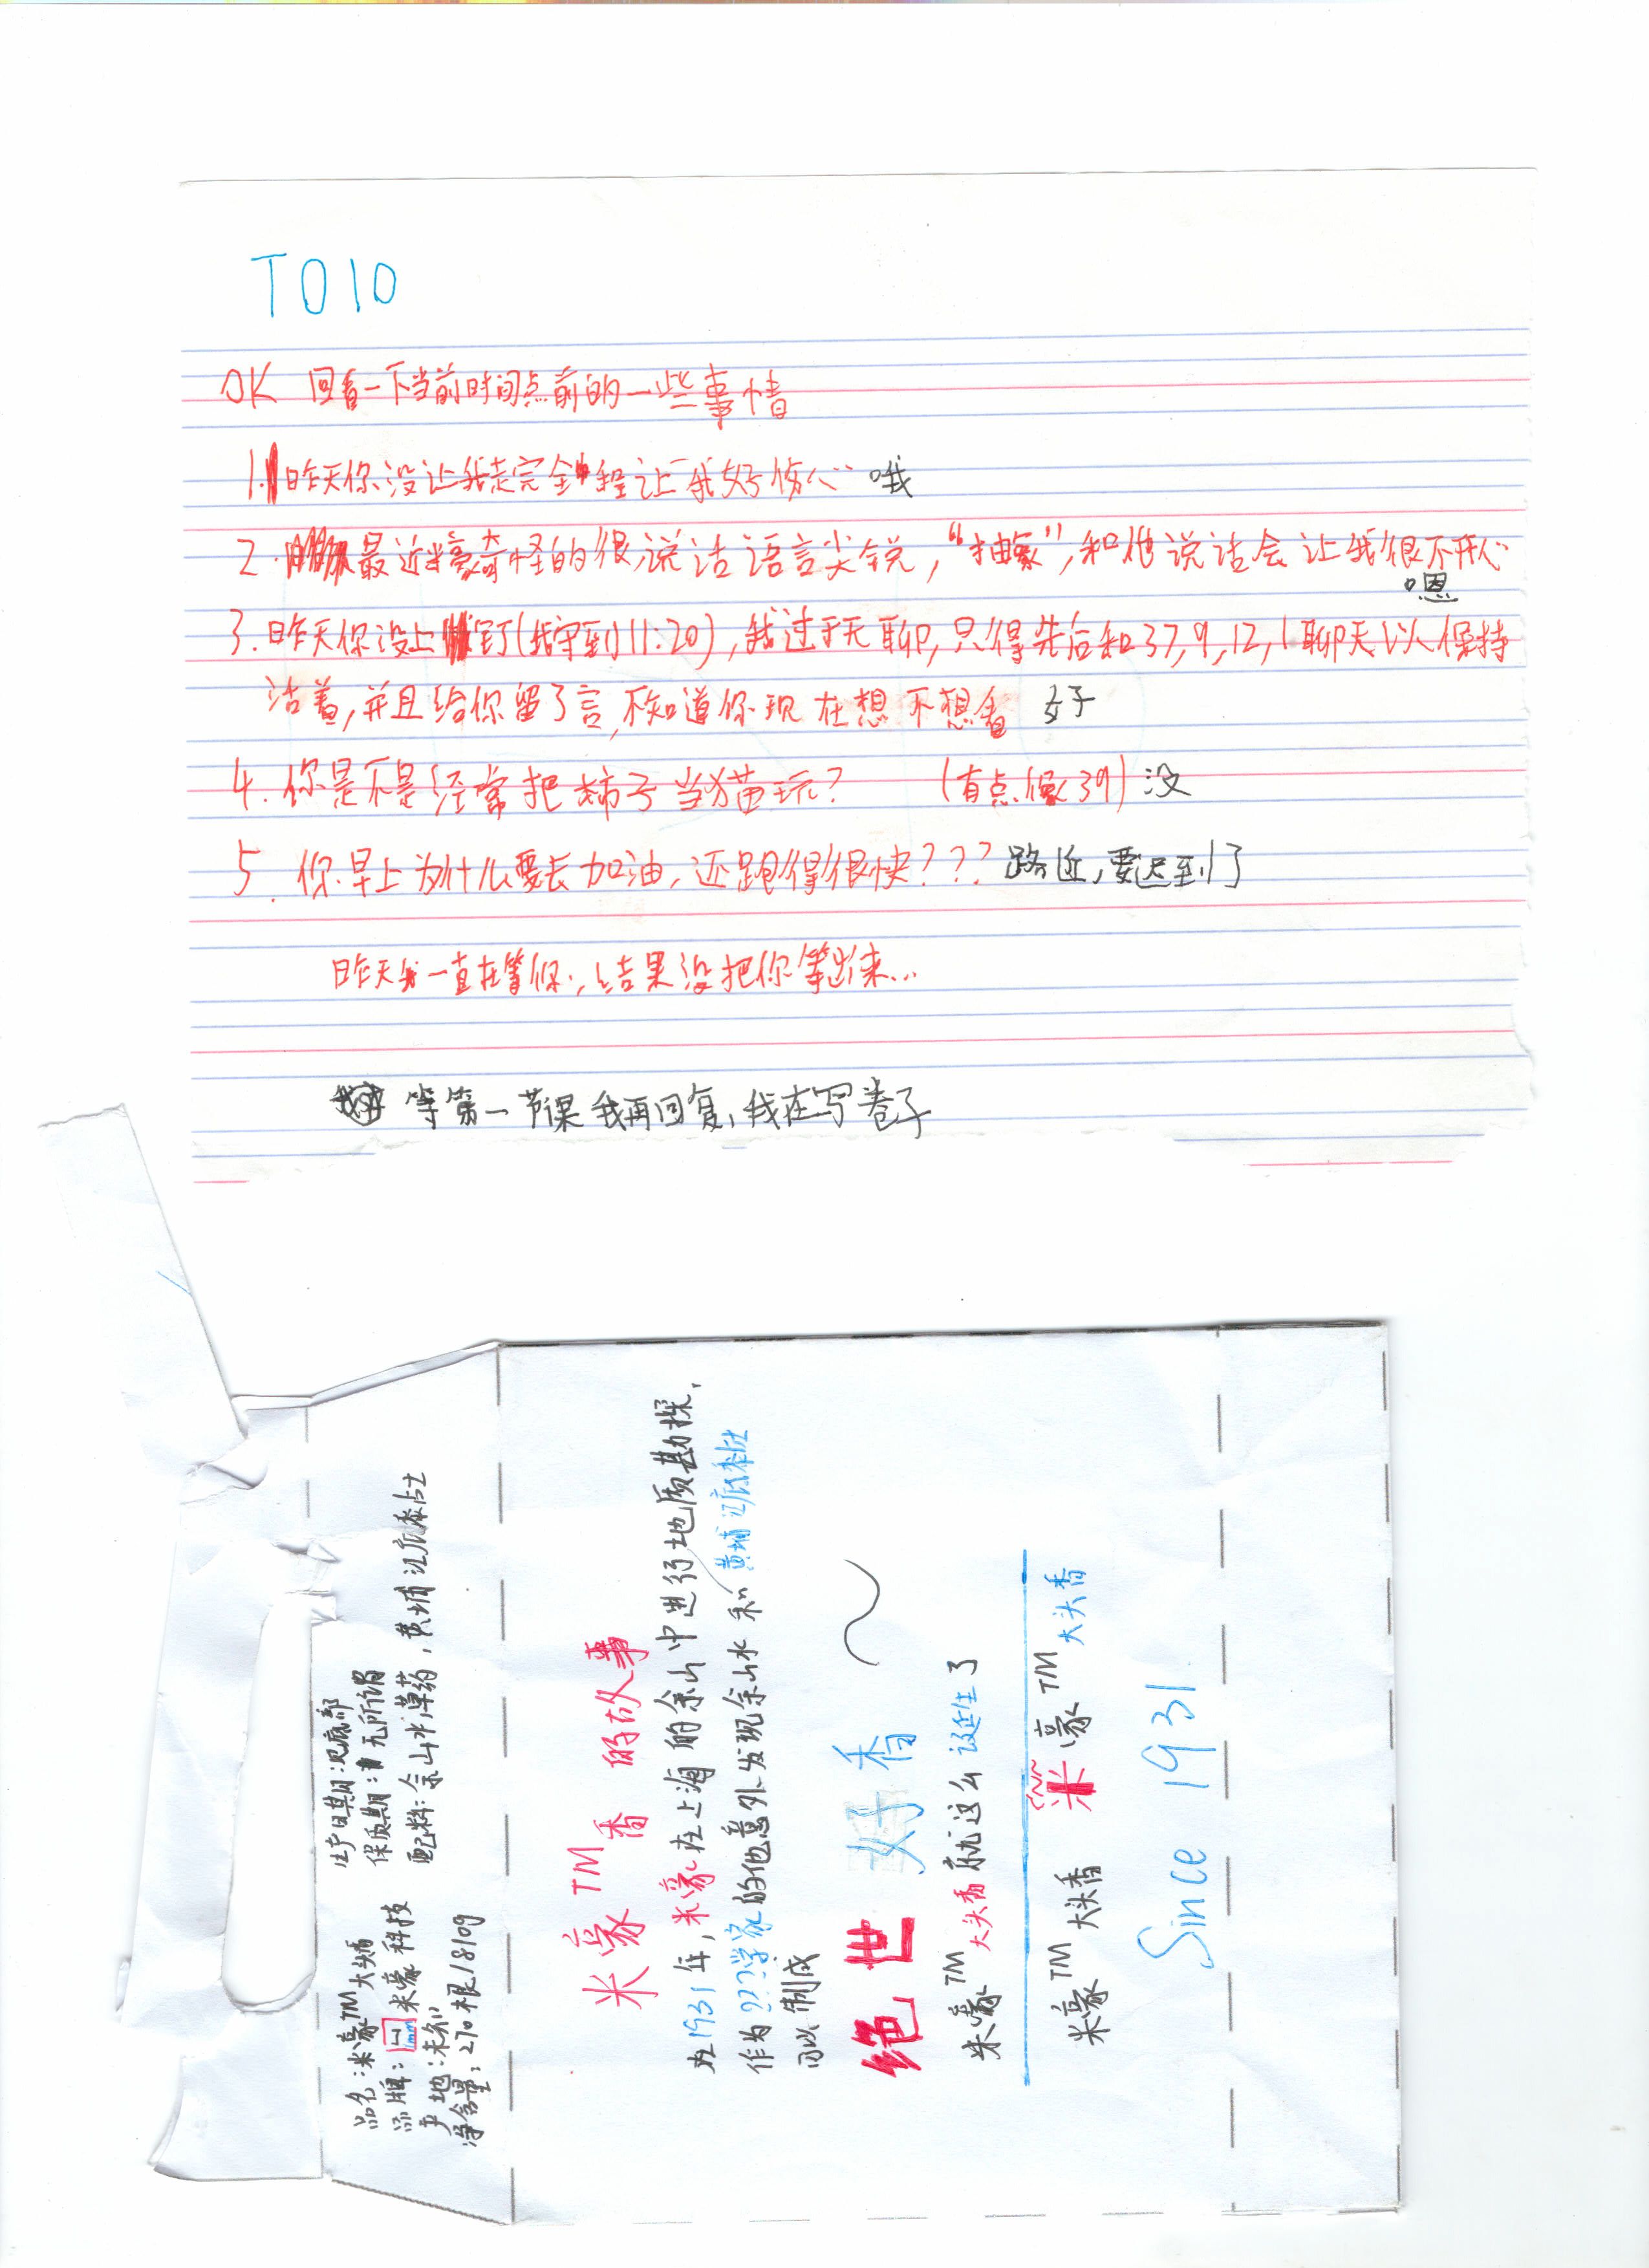 TO 10
OK 回看一下当前时间点前的一些事情
1. 昨天你没让我走完全程让我好伤心 哦
2. 最近米豪奇怪的很,说话语言尖锐,“抽象”,和他说话会让我很不开心
嗯
3. 昨天你没上钉(我守到11:20),我过于无聊,只得先后和37,9,12,1聊天以保持
活着,并且给你留了言,不知道你现在想不想看 好
4. 你是不是经常把柿子当猫玩? (有点像39) 没
5. 你早上为什么要去加油,还跑得很快??? 路近,要迟到了
昨天我一直在等你,结果没把你等出来...
等第一节课我再回复,我在写卷子
品名:米豪TM大头香
品牌: 米豪科技
产地:未知
净含量:270根/8109
生产日期:见底部
保质期:无所谓
配料:佘山水,草药,黄埔江底黏土
米豪TM香 的故事
在1931年,米豪在上海的佘山中进行地质勘探,
作为???学家的他意外发现佘山水和黄埔江底黏土
可以制成
绝世好香~
米豪TM大头香就这么诞生了
米豪TM大头香 米豪TM大头香
Since 1931